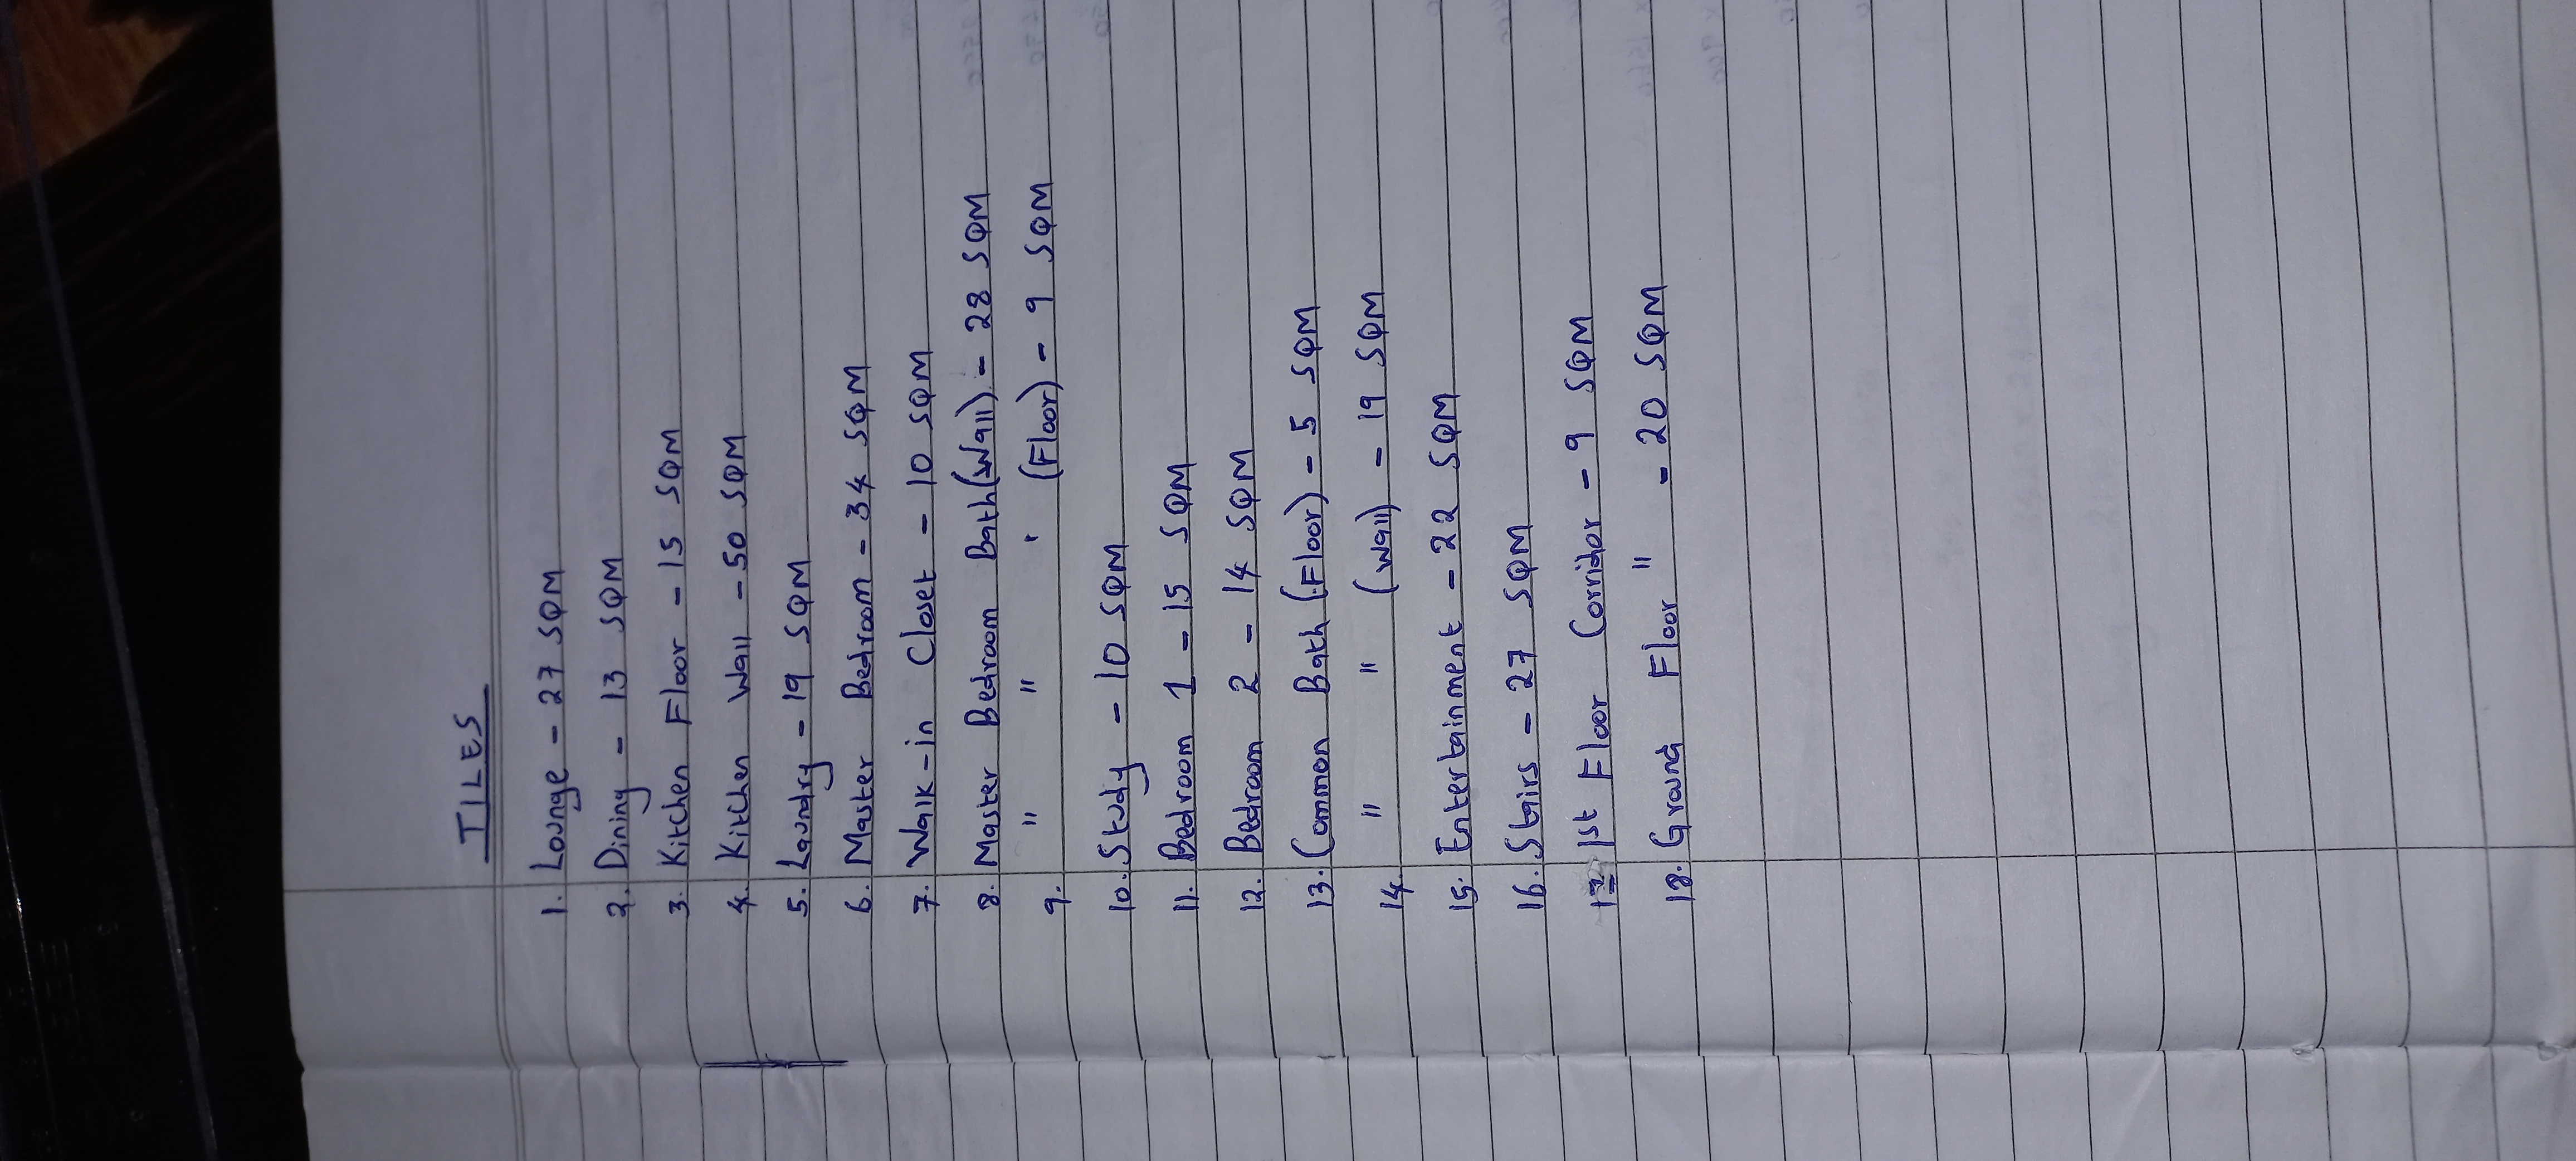 TILES
1. Lounge - 27 SQM
2. Dining - 13 SQM
3. Kitchen Floor - 15 SQM
4. Kitchen Wall - 50 SQM
5. Laundry - 19 SQM
6. Master Bedroom - 34 SQM
7. Walk-in Closet - 10 SQM
8. Master Bedroom Bath (Wall) - 28 SQM
9. " " ' (Floor) - 9 SQM
10. Study - 10 SQM
11. Bedroom 1 - 15 SQM
12. Bedroom 2 - 14 SQM
13. Common Bath (Floor) - 5 SQM
14. " " (Wall) - 19 SQM
15. Entertainment - 22 SQM
16. Stairs - 27 SQM
17 1st Floor Corridor - 9 SQM
18. Ground Floor " - 20 SQM